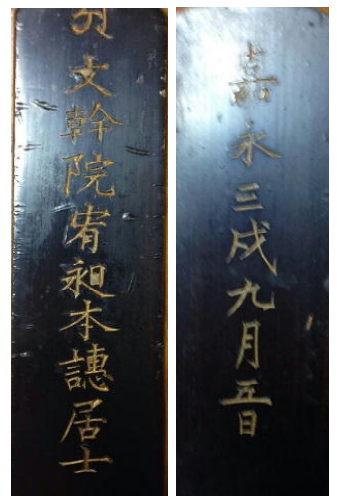 文幹院宥昶本譓居士
嘉永三戌九月五日